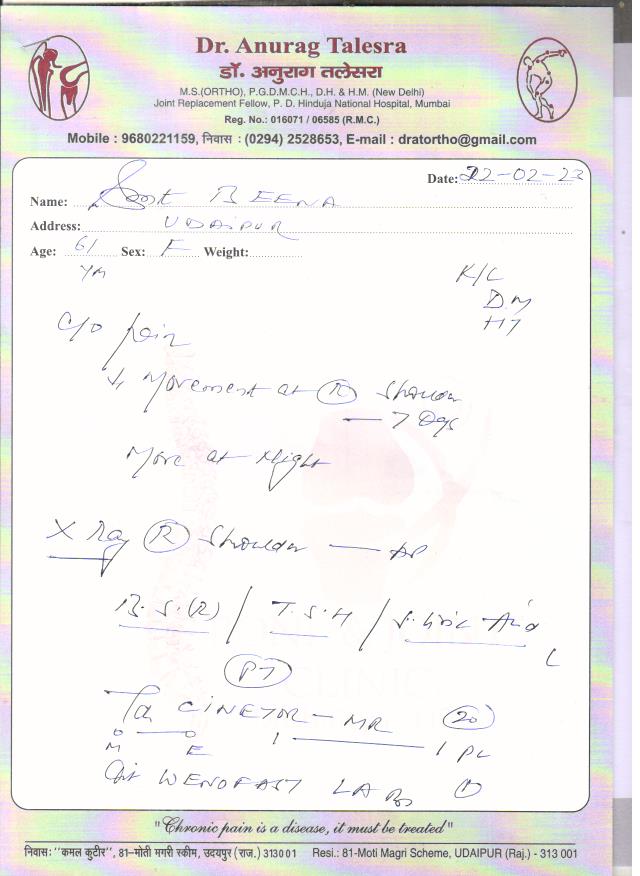 Dr. Anurag Talesra
डॉ. अनुराग तलेसरा
M.S.(ORTHO), P.G.D.M.C.H., D.H. & H.M. (New Delhi)
Joint Replacement Fellow, P. D. Hinduja National Hospital, Mumbai
Reg. No.: 016071 / 06585 (R.M.C.)
Mobile : 9680221159, निवास : (0294) 2528653, E-mail : dratortho@gmail.com
Date: 22-02-23
Name: Smt BEENA
Address: UDAIPUR
Age: 61 Sex: F Weight:
K/C
DM
HT
C/O pain
↓ Movement at (R) Shoulder
— 7 Days
More at Night
X Ray (R) Shoulder — AP
B.S.(R) / T.S.H / S. Uric Acid
PT
Tab CINETOR-MR (20)
M E 1 — 1 PC
WENOFAST (1)
"Chronic pain is a disease, it must be treated"
निवास: "कमल कुटीर", 81-मोती मगरी स्कीम, उदयपुर (राज.) 313001 Resi.: 81-Moti Magri Scheme, UDAIPUR (Raj.) - 313 001